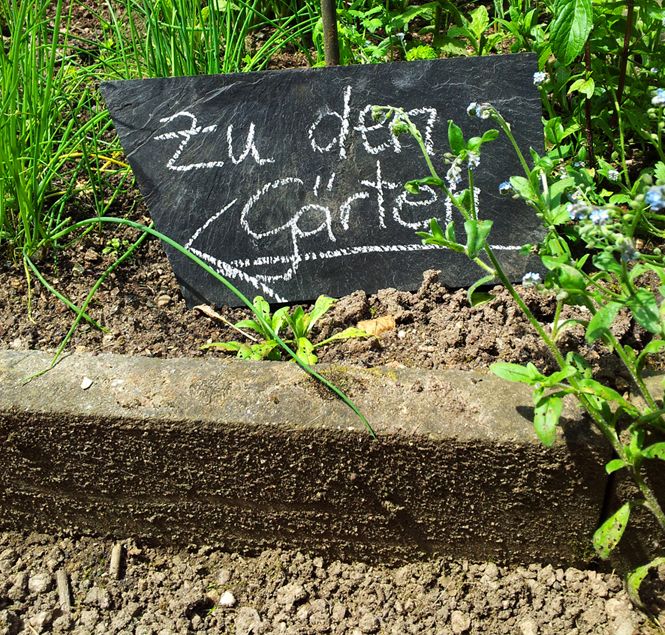 Zu den
Gärten